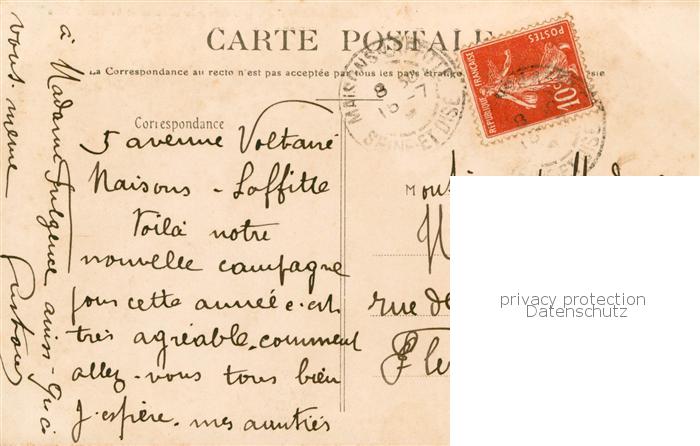 CARTE POSTALE
La Correspondance au recto n'est pas acceptée par tous les pays étrange
Correspondance
POSTES
REPUBLIQUE FRANÇAISE
10c
MAISONS-LAFFITTE
8 30
15 -7
SEINE-ET-OISE
5 avenue Voltaire
Maisons-Laffitte
Voilà notre
nouvelle campagne
pour cette année c'est
très agréable. comment
allez-vous tous bien
j'espère. mes amitiés
à Madame Fulgence ainsi-qu'à
vous-même
M
rue de
privacy protection
Datenschutz